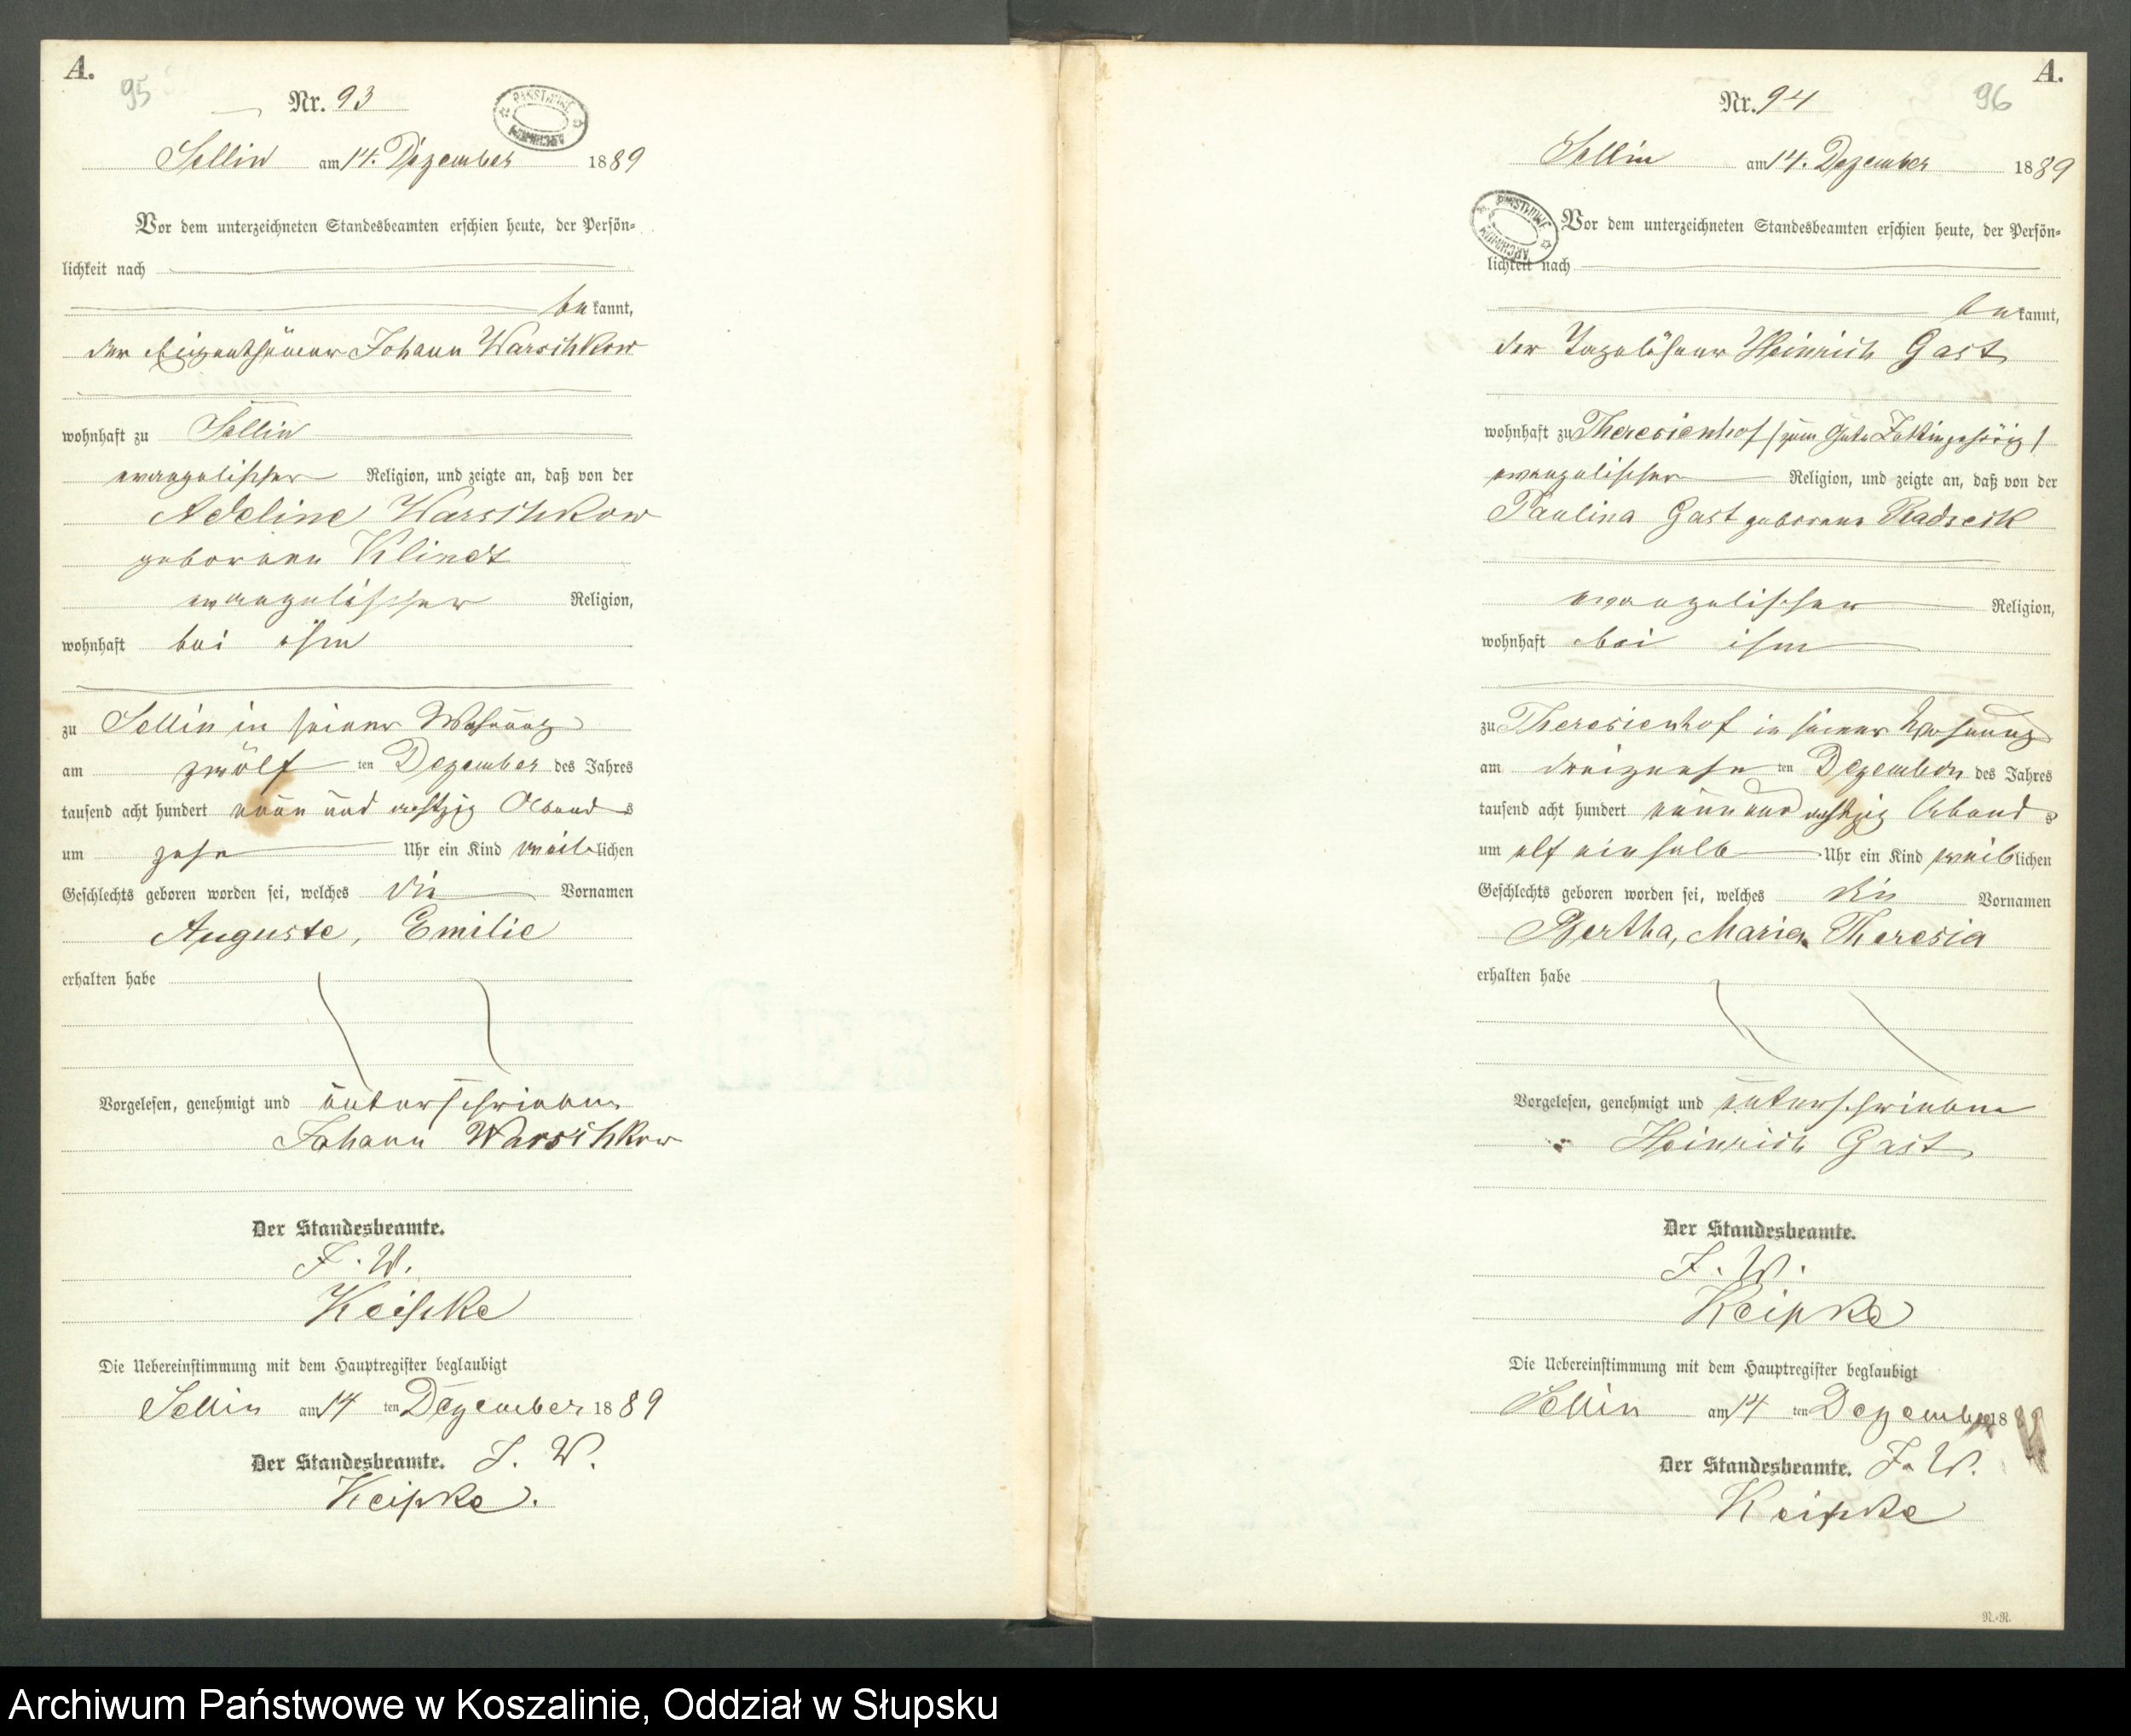 A.
95
Nr. 93
PAŃSTWOWE ARCHIWUM
Sellin am 14. Dezember 1889
Vor dem unterzeichneten Standesbeamten erschien heute, der Persön-
lichkeit nach
bekannt,
der Eigenthümer Johann Warschkow
wohnhaft zu Sellin
evangelischer Religion, und zeigte an, daß von der
Adeline Warschkow
geborenen Klindt
evangelischer Religion,
wohnhaft bei ihm
zu Sellin in seiner Wohnung
am zwölf ten Dezember des Jahres
tausend acht hundert neun und achtzig Abends
um zehn Uhr ein Kind weiblichen
Geschlechts geboren worden sei, welches die Vornamen
Auguste, Emilie
erhalten habe
Vorgelesen, genehmigt und unterschrieben
Johann Warschkow
Der Standesbeamte.
J. V.
Keipke
Die Uebereinstimmung mit dem Hauptregister beglaubigt
Sellin am 14 ten Dezember 1889
Der Standesbeamte. J. V.
Keipke.
A.
96
Nr. 94
Sellin am 14. Dezember 1889
PAŃSTWOWE ARCHIWUM
Vor dem unterzeichneten Standesbeamten erschien heute, der Persön-
lichkeit nach
bekannt,
der Tagelöhner Heinrich Gast
wohnhaft zu Theresienhof (zum Gute gehörig)
evangelischer Religion, und zeigte an, daß von der
Paulina Gast geborene
evangelischer Religion,
wohnhaft bei ihm
zu Theresienhof in seiner Wohnung
am dreizehn ten Dezember des Jahres
tausend acht hundert neun und achtzig Abends
um elf einhalb Uhr ein Kind weiblichen
Geschlechts geboren worden sei, welches die Vornamen
Bertha, Maria, Theresia
erhalten habe
Vorgelesen, genehmigt und unterschrieben
Heinrich Gast
Der Standesbeamte.
J. V.
Keipke
Die Uebereinstimmung mit dem Hauptregister beglaubigt
Sellin am 14 ten Dezember 1889
Der Standesbeamte. J. V.
Keipke
N.-R.
Archiwum Państwowe w Koszalinie, Oddział w Słupsku